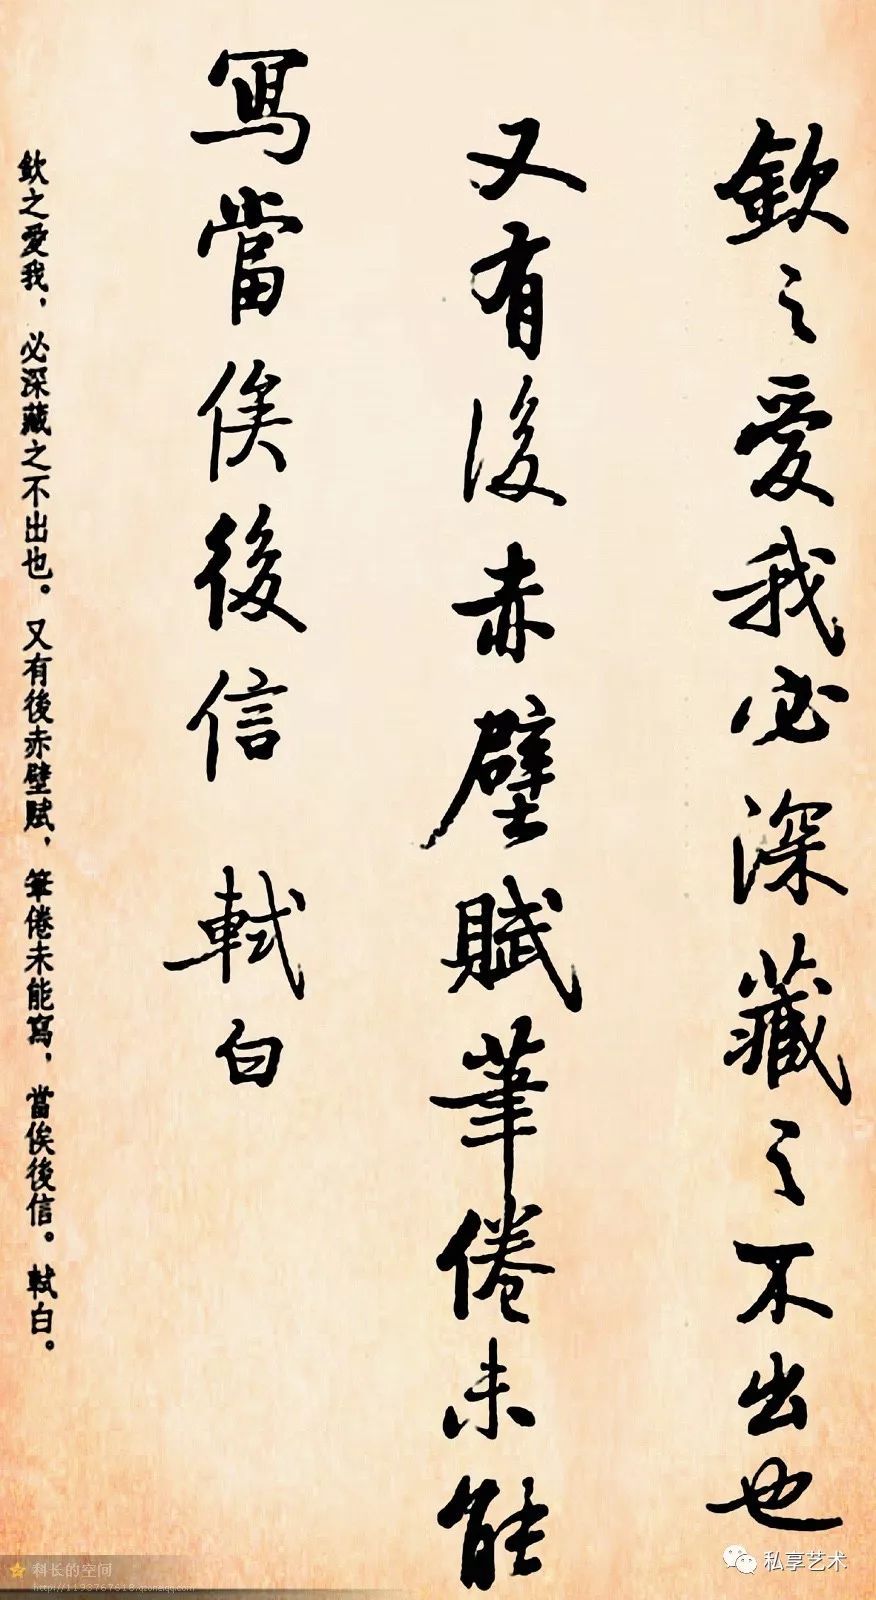 欽之愛我必深藏之不出也
又有後赤壁賦筆倦未能
寫當俟後信 軾白
欽之愛我，必深藏之不出也。又有後赤壁賦，筆倦未能寫，當俟後信。軾白。
科长的空间
http://1193767618.qzone.qq.com
私享艺术